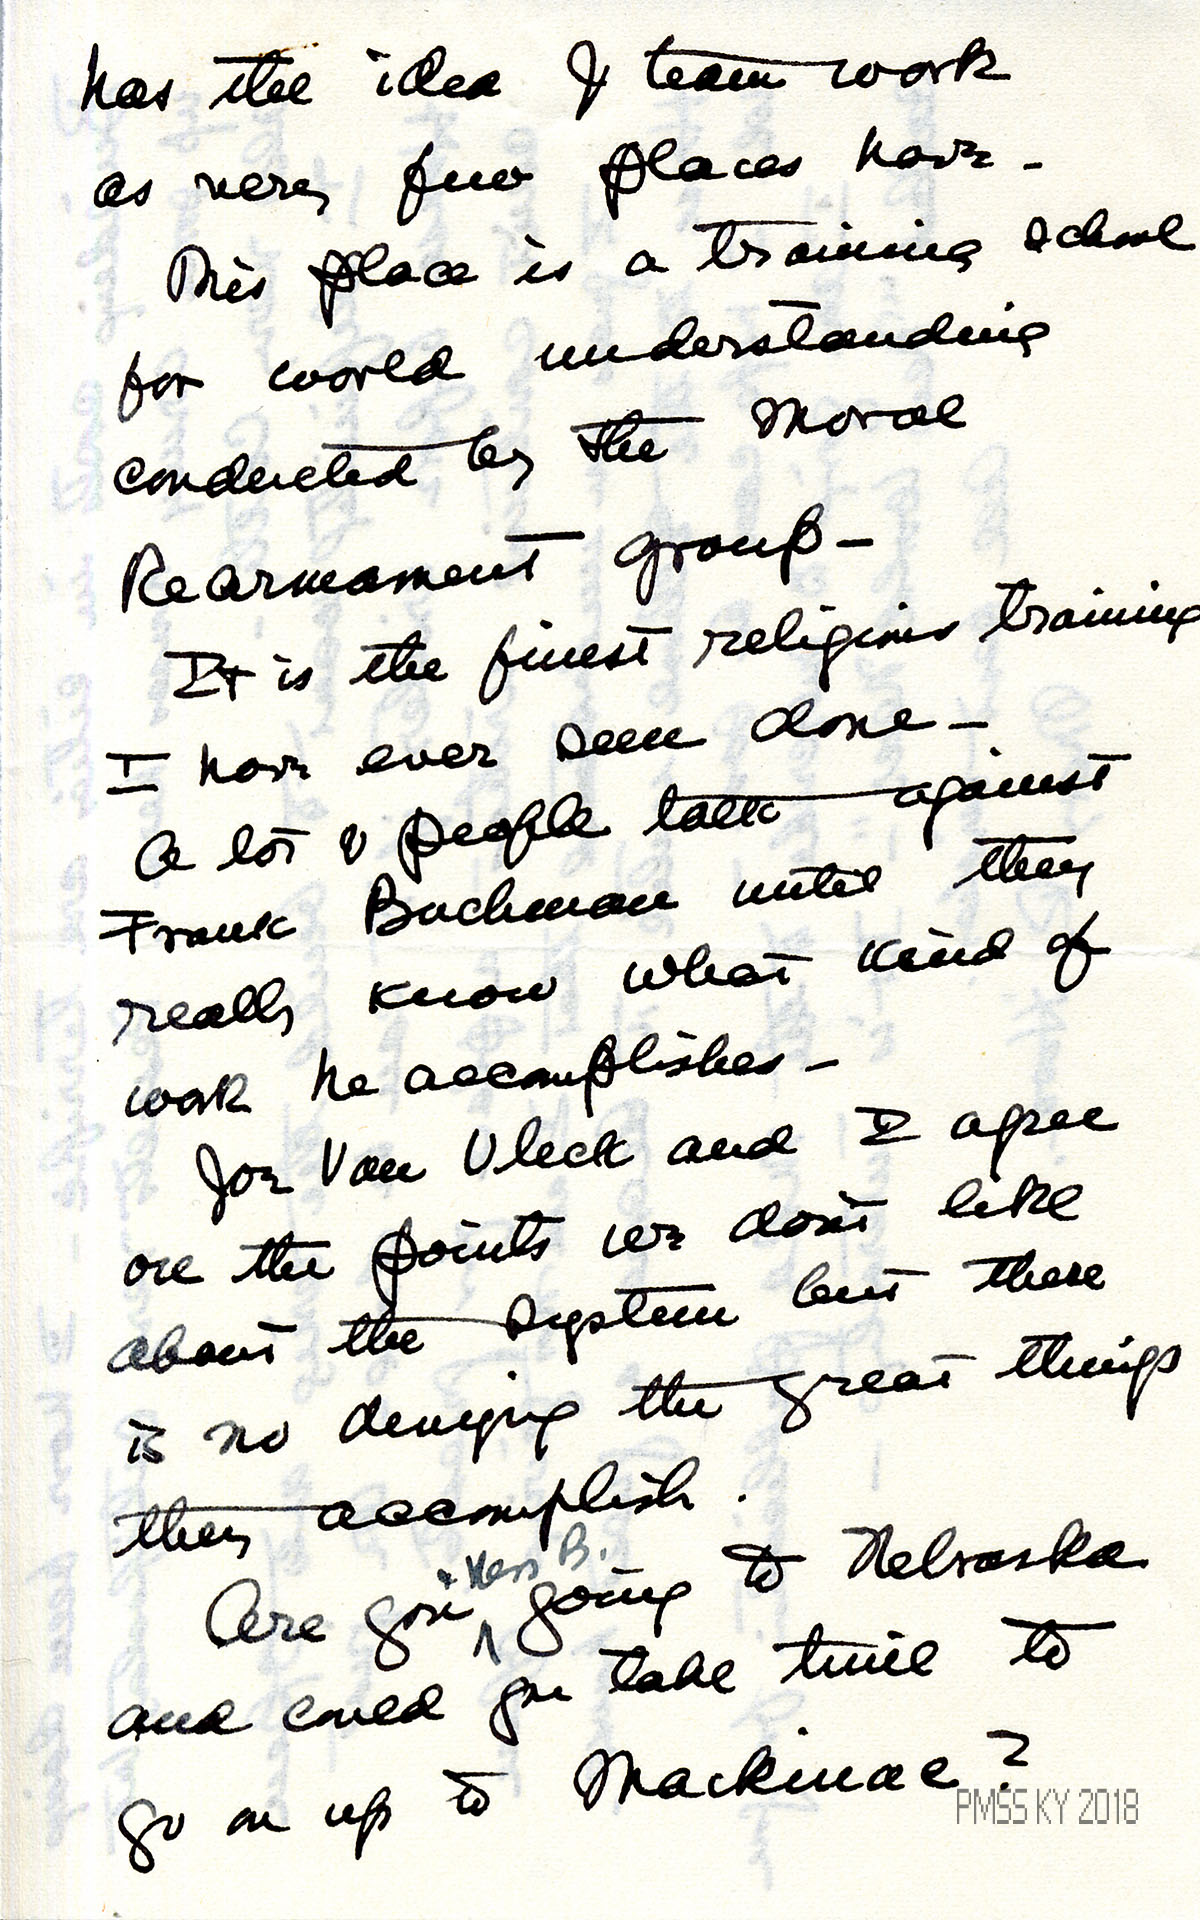 has the idea of team work
as very few places have -
This place is a training school
for world understanding
conducted by the Moral
Rearmament group -
It is the finest religious training
I have ever seen done -
A lot of people talk against
Frank Buchman until they
really know what kind of
work he accomplishes -
Joe Van Vleck and I agree
on the points we don't like
about the system but there
is no denying the great things
they accomplish.
+ B.
Are you ^ going to Nebraska
and could you take time to
go on up to Mackinac?
PMSS KY 2018